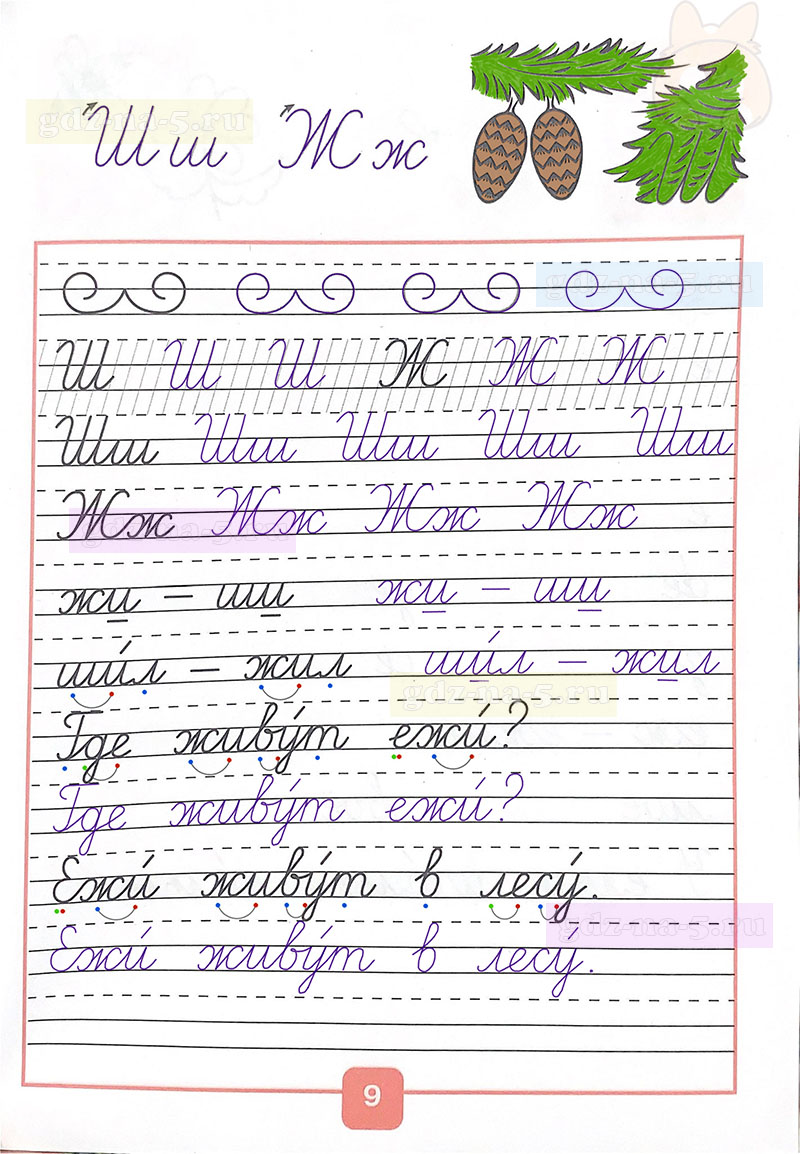 Ш ш Ж ж
Ш Ш Ш Ж Ж Ж
Шш Шш Шш Шш Шш
Жж Жж Жж Жж
жи – ши жи – ши
ши́л – жил ши́л – жил
Где живу́т ежи́?
Где живу́т ежи́?
Ежи́ живу́т в лесу́.
Ежи́ живу́т в лесу́.
9
gdz-na-5.ru
gdz-na-5.ru
gdz-na-5.ru
gdz-na-5.ru
gdz-na-5.ru